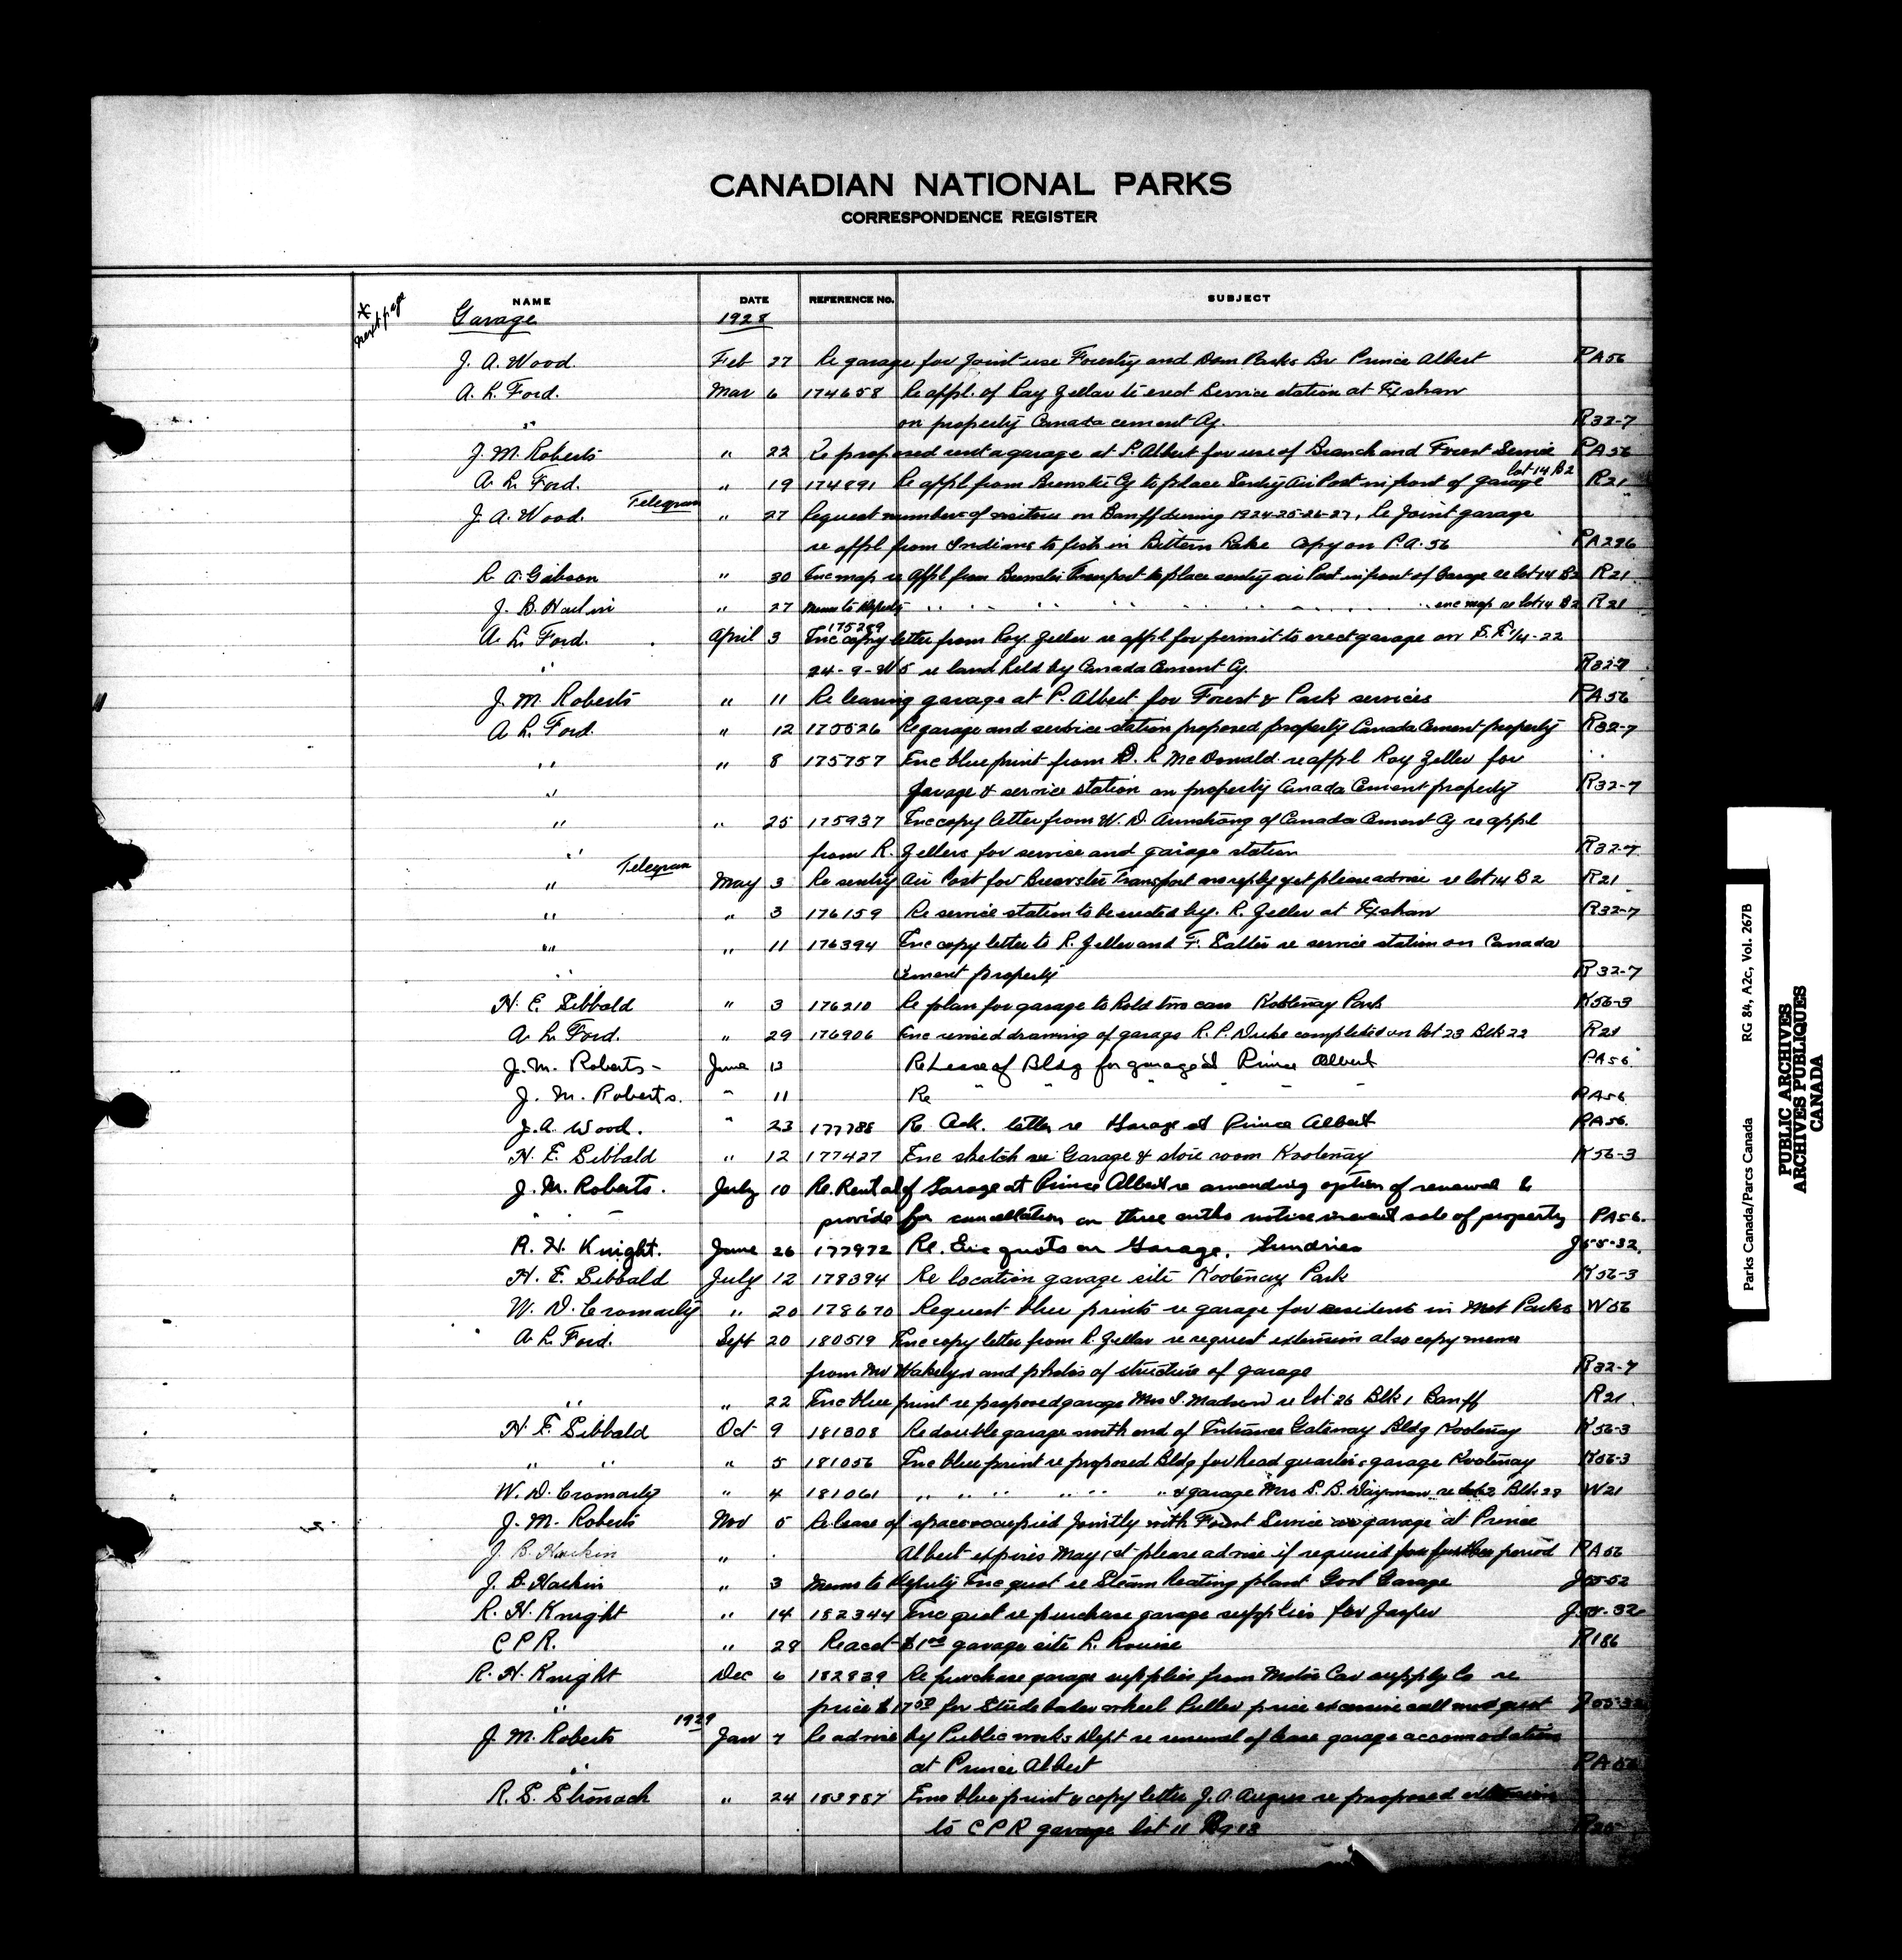 CANADIAN NATIONAL PARKS
CORRESPONDENCE REGISTER
NAME DATE REFERENCE NO. SUBJECT
* next page Garage 1928
J. A. Wood. Feb 27 Re garage for joint use Forestry and Dom Parks Br Prince Albert PA56
A. L. Ford. Mar 6 174658 Re appl. of Ray Zeller to erect Service station at Exshaw
" on property Canada cement Cy. R32-7
J. M. Roberts " 22 Re proposed rent a garage at P. Albert for use of Branch and Forest Service PA56
A. L. Ford. " 19 174891 Re appl from Brewster Cy to place Sentry Air Post in front of garage lot 14 B2 R21
J. A. Wood. Telegram " 27 Request number of visitors on Banff during 1924-25-26-27, Re joint garage
re appl from Indians to fish in Bittern Lake copy on P.A. 56 PA296
R. A. Gibson " 30 Enc map re appl from Brewster Transport to place sentry air Post in front of Garage re lot 14 B2 R21
J. B. Harkin " 27 Memo to Deputy " " " " " " " " enc map re lot 14 B2 R21
A. L. Ford. April 3 175289 Enc copy letter from Roy. Zeller re appl for permit to erect garage on S.E. 1/4-22
" 24-9-W5 re land held by Canada Cement Cy. R32-7
J. M. Roberts " 11 Re leasing garage at P. Albert for Forest & Park services PA56
A. L. Ford. " 12 175526 Re garage and service station proposed property Canada Cement property R32-7
" " 8 175757 Enc blue print from D. R McDonald re appl Roy Zeller for
" garage & service station on property Canada Cement property R32-7
" " 25 175937 Enc copy letter from W. D. Armstrong of Canada Cement Cy re appl
" from R. Zellers for service and garage station R32-7
" Telegram May 3 Re sentry Air Post for Brewster Transport no reply yet please advise re lot 14 B2 R21
" " 3 176159 Re service station to be erected by R. Zeller at Exshaw R32-7
" " 11 176394 Enc copy letter to R. Zeller and F. Salter re service station on Canada
" Cement property R32-7
H. E. Sibbald " 3 176210 Re plan for garage to hold two cars Kootenay Park K56-3
A. L. Ford. " 29 176906 Enc revised drawing of garage R. P. Duke completed on lot 23 Blk 22 R21
J. M. Roberts - June 13 Re Lease of Bldg for garage at Prince Albert PA56
J. M. Roberts. " 11 Re " " " " " PA56
J. A. Wood. " 23 177788 Re Ack. letter re Garage at Prince Albert PA56.
H. E. Sibbald " 12 177427 Enc sketch re Garage & store room Kootenay K56-3
J. M. Roberts. July 10 Re. Rental of Garage at Prince Albert re amending option of renewal to
" " provide for cancellation on three mths notice in event sale of property PA56.
R. H. Knight. June 26 177972 Re. Enc quots on Garage, Sundries J55-32.
H. E. Sibbald July 12 178394 Re location garage site Kootenay Park K56-3
W. D. Cromarty " 20 178670 Request blue prints re garage for residents in Mnt Parks W56
A. L. Ford. Sept 20 180519 Enc copy letter from R. Zeller re request extension also copy memo
from Mr Wakelyn and photos of structure of garage R32-7
" " 22 Enc blue print re proposed garage Mrs S. Madsen re lot 26 Blk 1 Banff R21.
H. E. Sibbald Oct 9 181308 Re double garage north end of Entrance Gateway Bldg Kootenay K56-3
" " " 5 181056 Enc blue print re proposed Bldg for head quarters garage Kootenay K56-3
W. D. Cromarty " 4 181061 " " " " " " & garage Mrs S. B. re Blk 28 W21
J. M. Roberts Nov 5 Re lease of space occupied jointly with Forest Service as garage at Prince
J. B. Harkin " Albert expires May 1st please advise if required for further period PA56
J. B. Harkin " 3 Memo to Deputy Enc quot re Steam heating plant Govt Garage J55-52
R. H. Knight " 14 182344 Enc quot re purchase garage supplies for Jasper J55-32
C P R. " 28 Re acct $1.00 garage site L. Louise R186
R. H. Knight Dec 6 182939 Re purchase garage supplies from Motor Car supply Co re
" price $17.50 for Studebaker wheel Puller price excessive call quot J55-32
J. M. Roberts 1929 Jan 7 Re advise by Public works Dept re renewal of lease garage accomodation
" at Prince Albert PA56
R. S. Stronach " 24 183987 Enc blue print & copy letter J. A. re proposed extension
to C P R garage lot 11
Parks Canada/Parcs Canada RG 84, A2c, Vol. 267B
PUBLIC ARCHIVES
ARCHIVES PUBLIQUES
CANADA